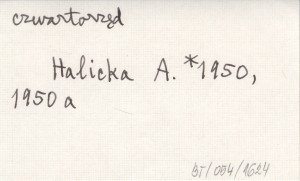 czwartorzęd
Halicka A. *1950,
1950 a
BT/054/1624